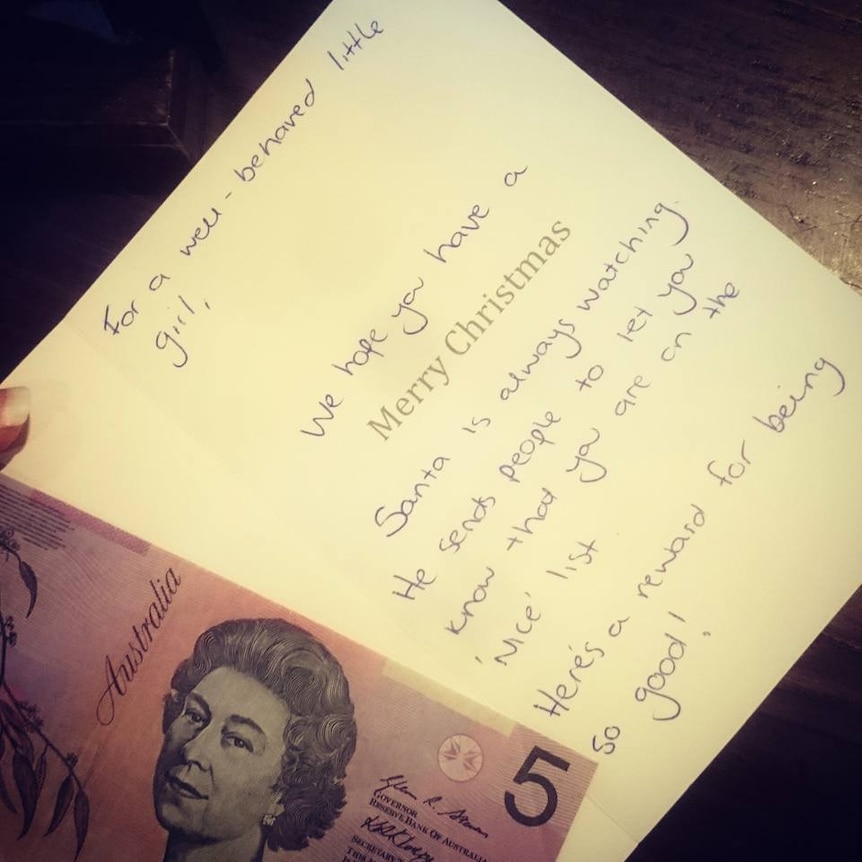 For a well-behaved little
girl,
We hope you have a
Merry Christmas
Santa is always watching.
He sends people to let you
know that you are on the
'Nice' list
Here's a reward for being
so good!
Australia
5
GOVERNOR
RESERVE BANK OF AUSTRALIA
SECRETARY
THIS